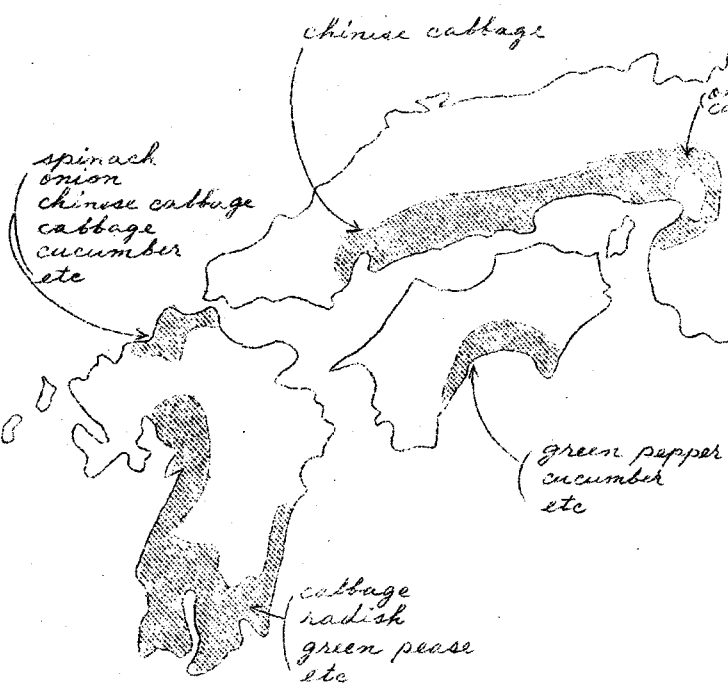 chinese cabbage
spinach
onion
chinese cabbage
cabbage
cucumber
etc
green pepper
cucumber
etc
cabbage
radish
green pease
etc